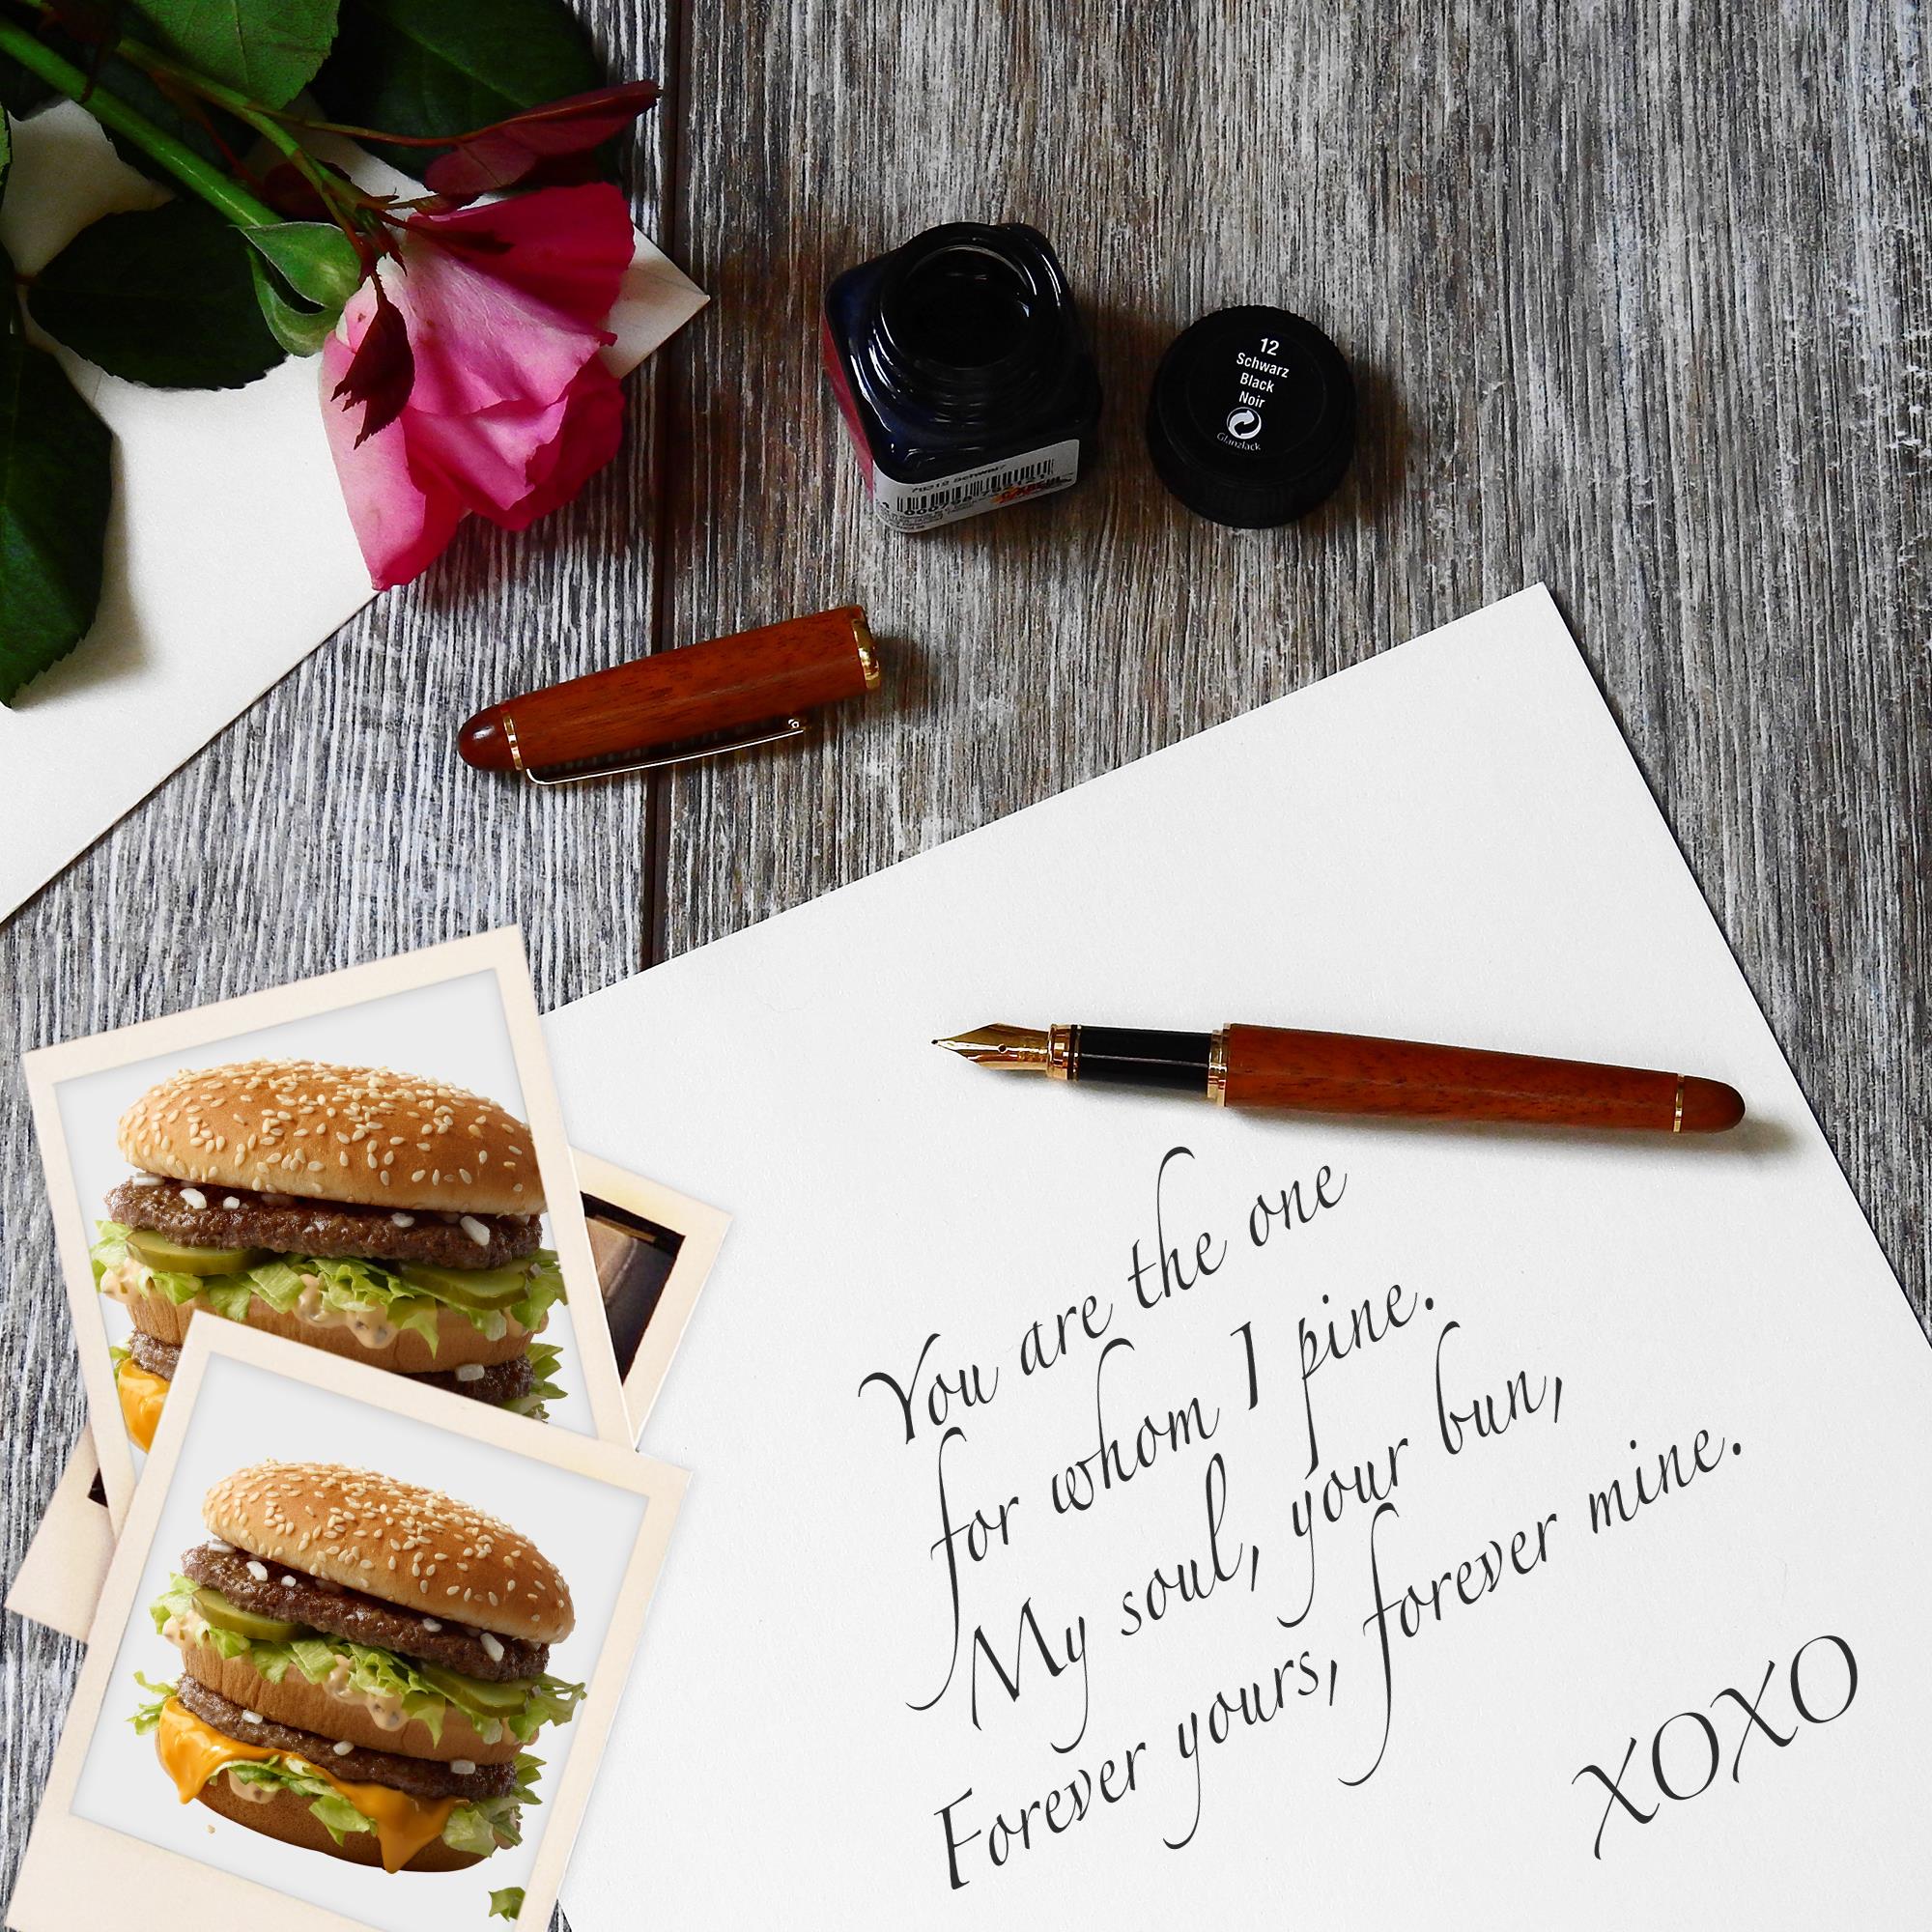 12
Schwarz
Black
Noir
Glanzlack
You are the one
for whom I pine.
My soul, your bun,
Forever yours, forever mine.
XOXO